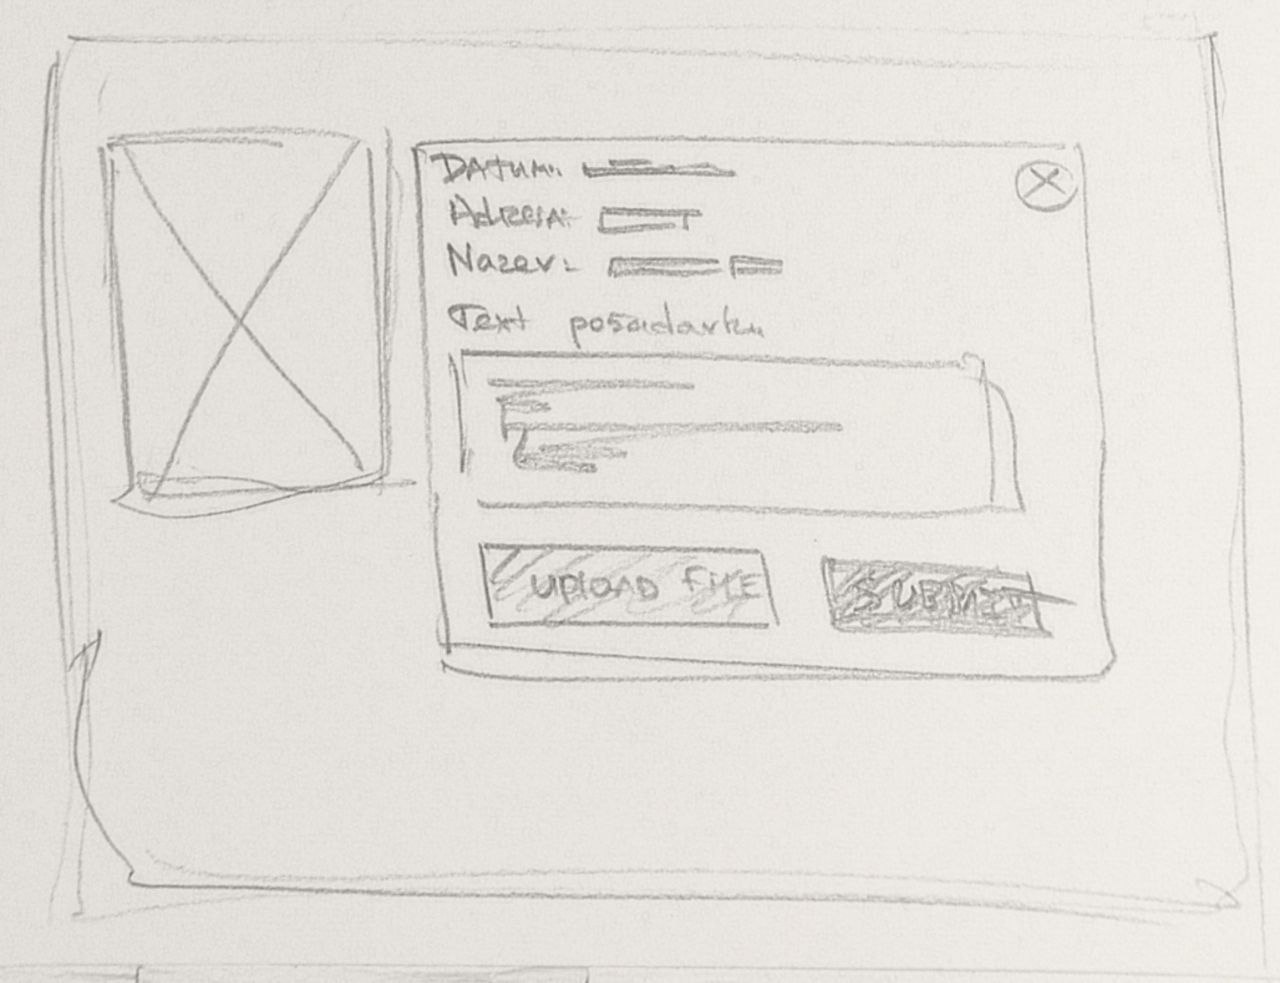 DATUM:
Adresa:
Nazev:
Text posadavku
UPLOAD FILE
SUBMIT